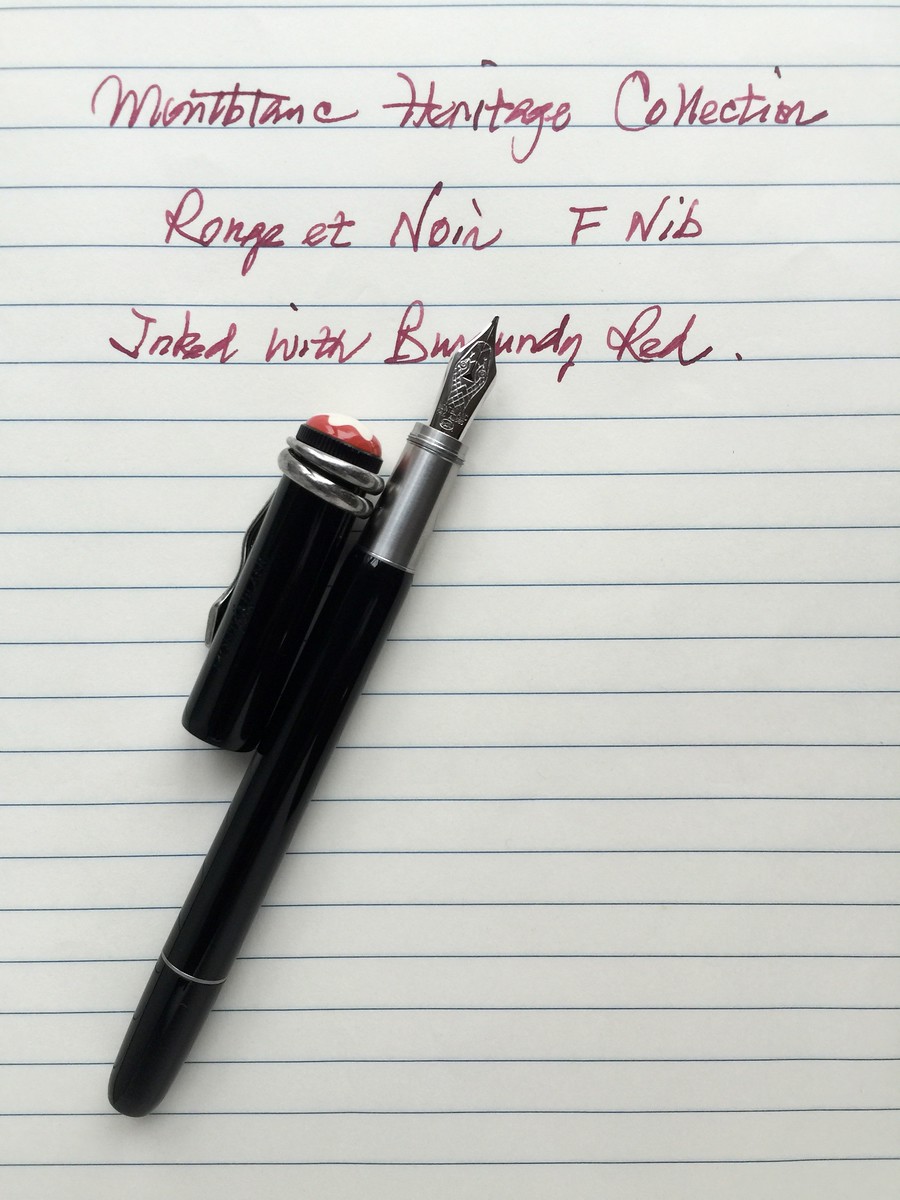 Montblanc Heritage Collection
Rouge et Noir F Nib
Inked with Burgundy Red.